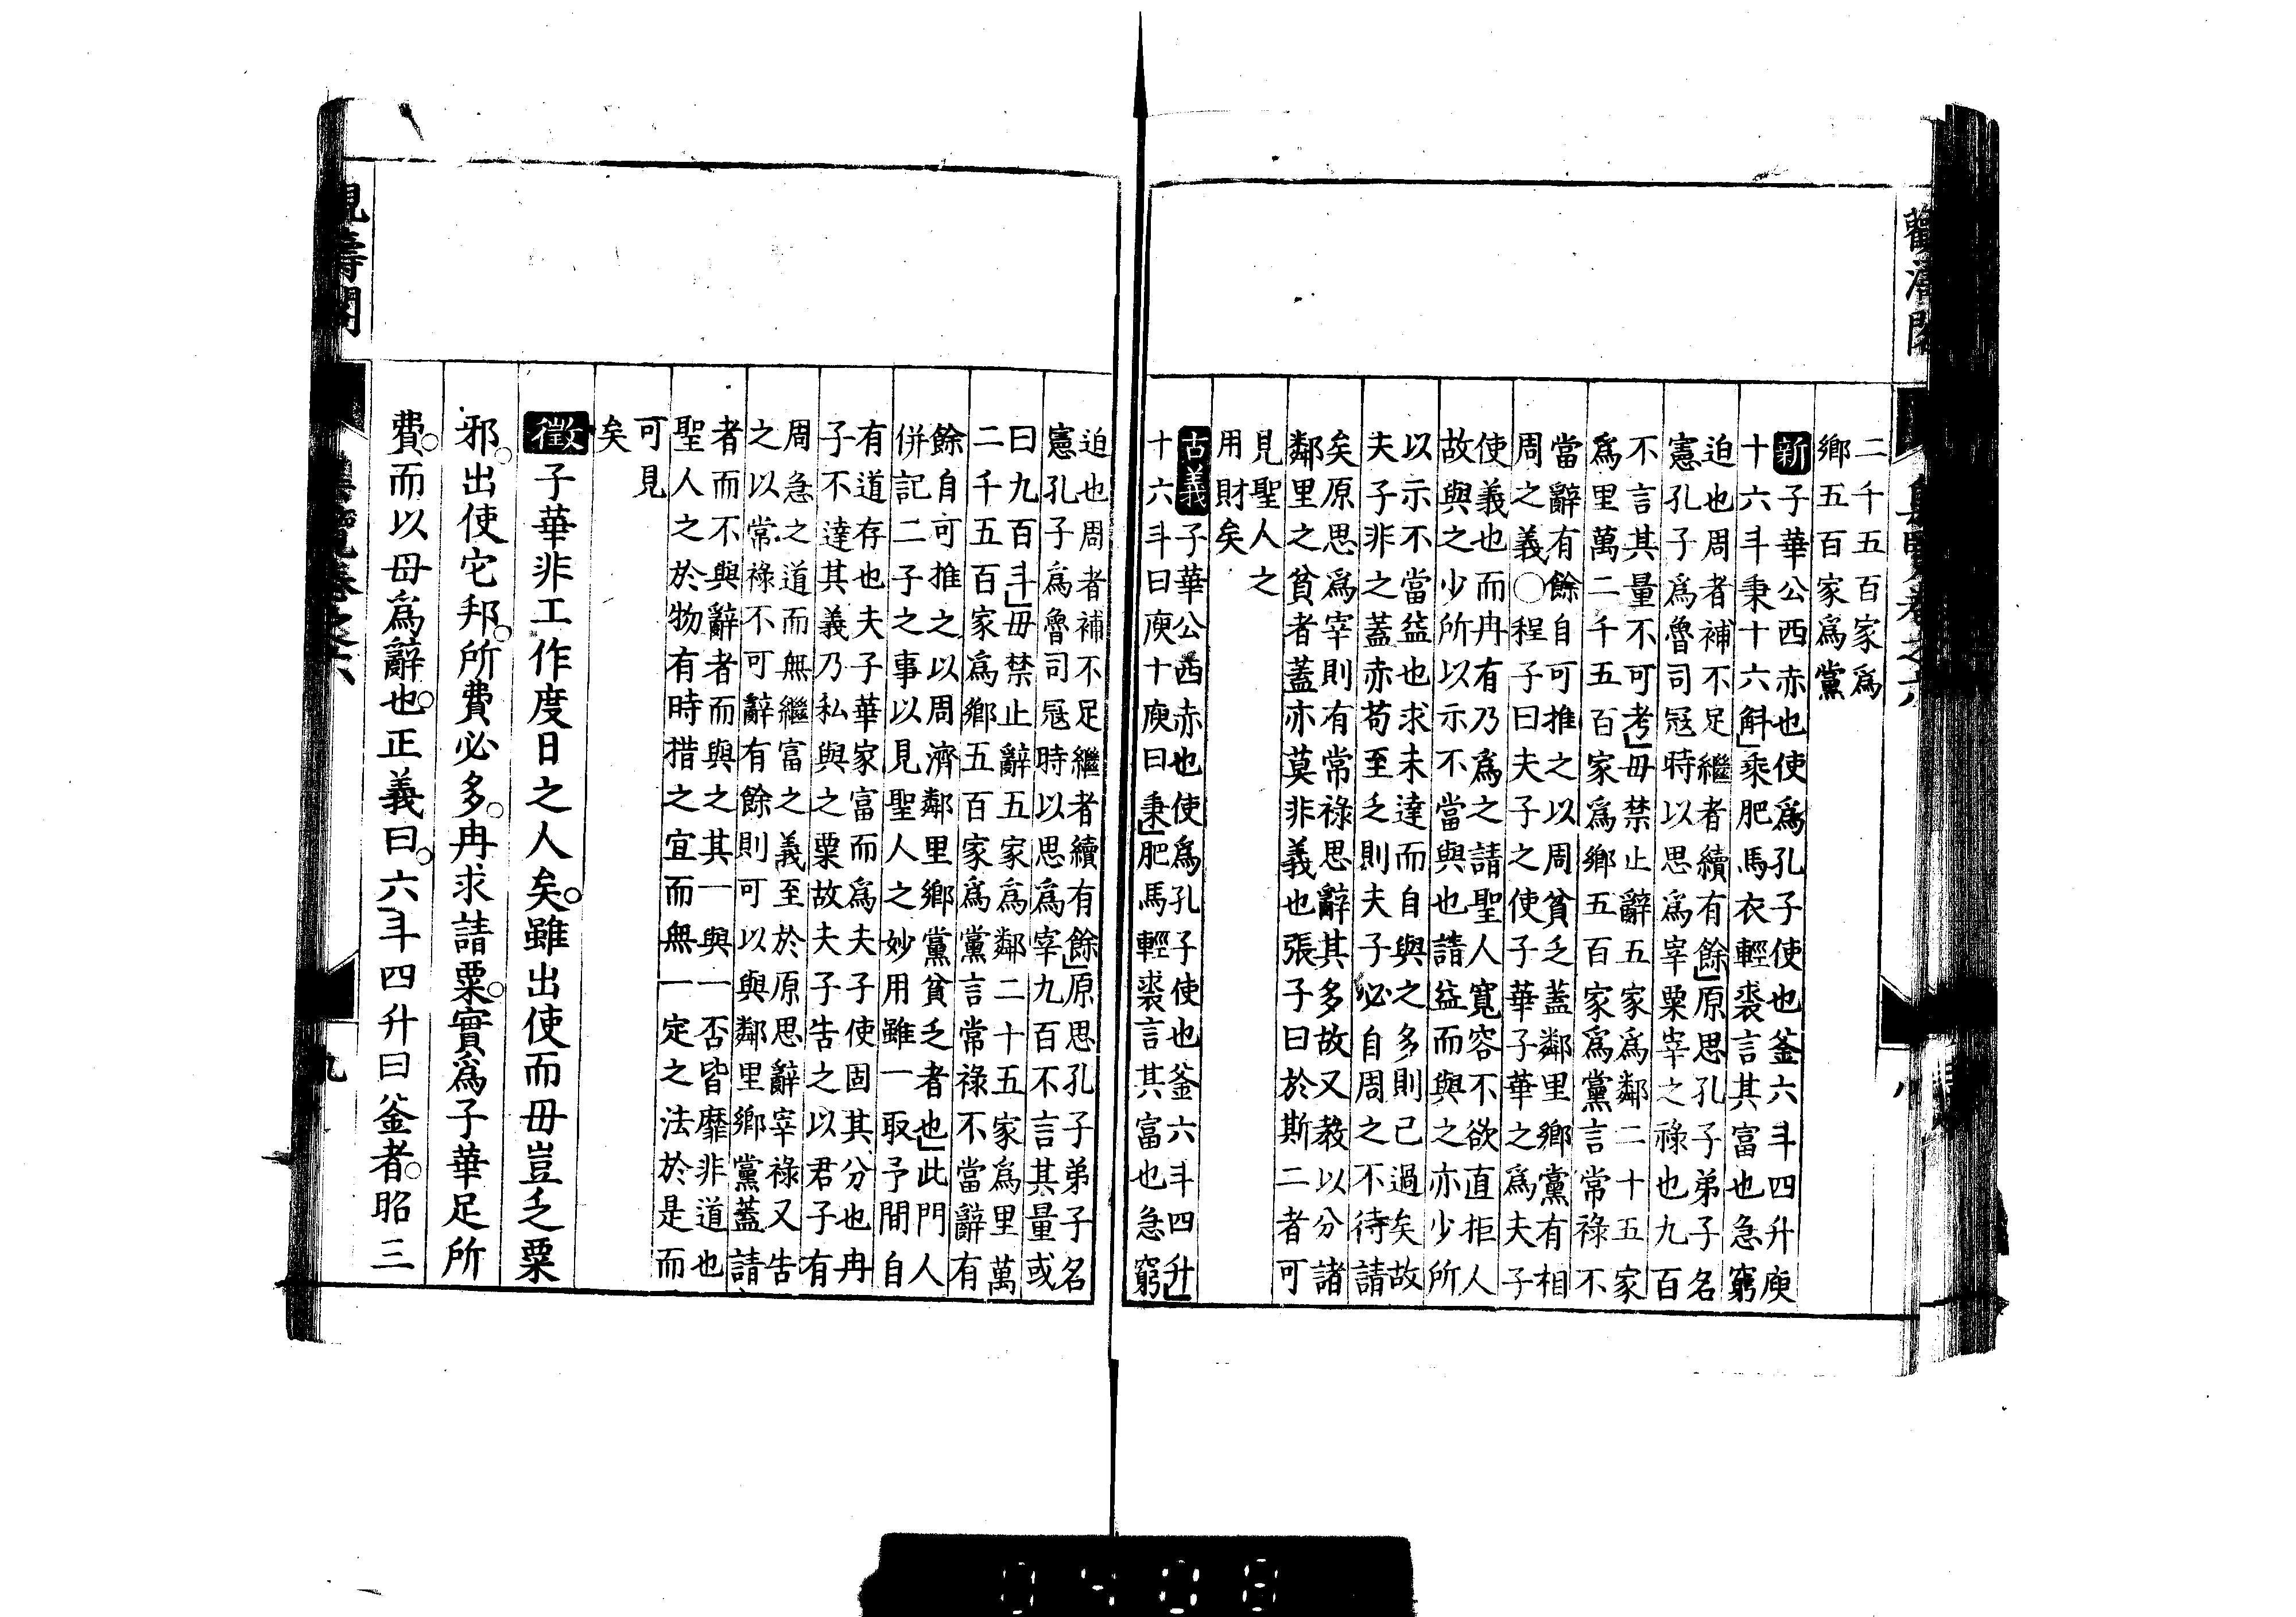 二千五百家爲
鄉五百家爲黨
新子華公西赤也使爲孔子使也釜六斗四升庾
十六斗秉十六斛」乘肥馬衣輕裘言其富也急窮
迫也周者補不足繼者續有餘」原思孔子弟子名
憲孔子爲魯司冦時以思爲宰粟宰之祿也九百
不言其量不可考」毋禁止辭五家爲鄰二十五家
爲里萬二千五百家爲鄉五百家爲黨言常祿不
當辭有餘自可推之以周貧乏蓋鄰里鄉黨有相
周之義○程子曰夫子之使子華子華之爲夫子
使義也而冉有乃爲之請聖人寬容不欲直拒人
故與之少所以示不當與也請益而與之亦少所
以示不當益也求未達而自與之多則已過矣故
夫子非之蓋赤苟至乏則夫子必自周之不待請
矣原思爲宰則有常祿思辭其多故又教以分諸
鄰里之貧者蓋亦莫非義也張子曰於斯二者可
見聖人之
用財矣
古義子華公西赤也使爲孔子使也釜六斗四升」
十六斗曰庾十庾曰秉」肥馬輕裘言其富也急窮
迫也周者補不足繼者續有餘」原思孔子弟子名
憲孔子爲魯司冦時以思爲宰九百不言其量或
曰九百斗」毋禁止辭五家爲鄰二十五家爲里萬
二千五百家爲鄉五百家爲黨言常祿不當辭有
餘自可推之以周濟鄰里鄉黨貧乏者也」此門人
併記二子之事以見聖人之妙用雖一取予間自
有道存也夫子華家富而爲夫子使固其分也冉
子不達其義乃私與之粟故夫子告之以君子有
周急之道而無繼富之義至於原思辭宰祿又告
之以常祿不可辭有餘則可以與鄰里鄉黨蓋請
者而不與辭者而與之其一與一否皆靡非道也
聖人之於物有時措之宜而無一定之法於是而
可見
矣
徵子華非工作度日之人矣。雖出使而毋豈乏粟
邪。出使它邦。所費必多。冉求請粟。實爲子華足所
費。而以母爲辭也。正義曰。六斗四升曰釜者。昭三
卷之六
九